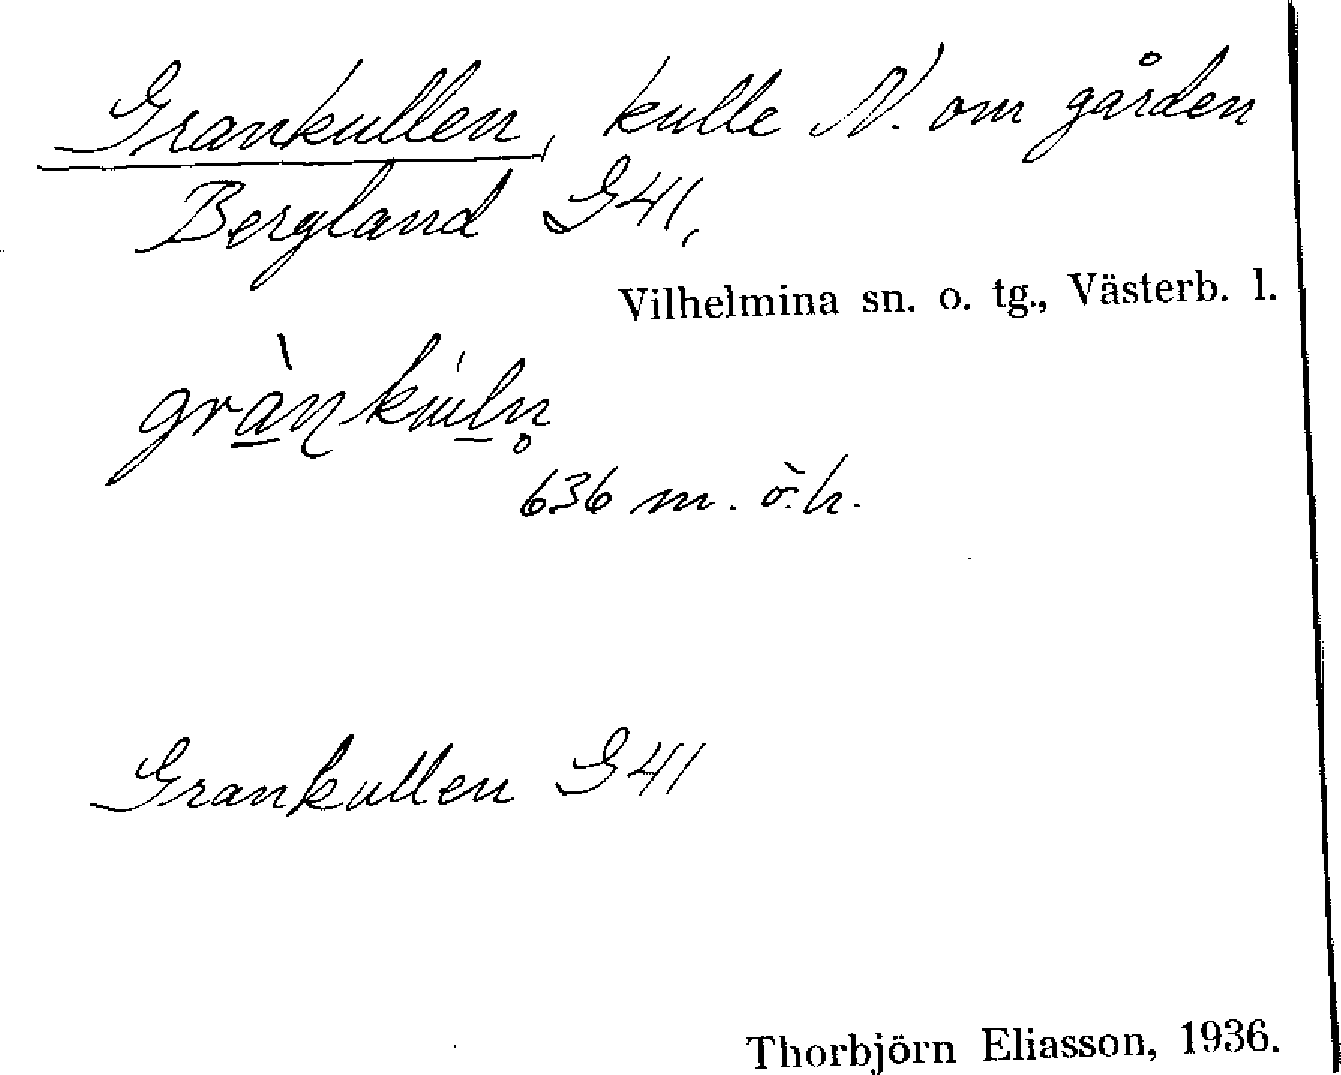 Grankullen, kulle N. om gården
Bergland G41,
Vilhelmina sn. o. tg., Västerb. l.
636 m. ö. h.
Grankullen G41
Thorbjörn Eliasson, 1936.